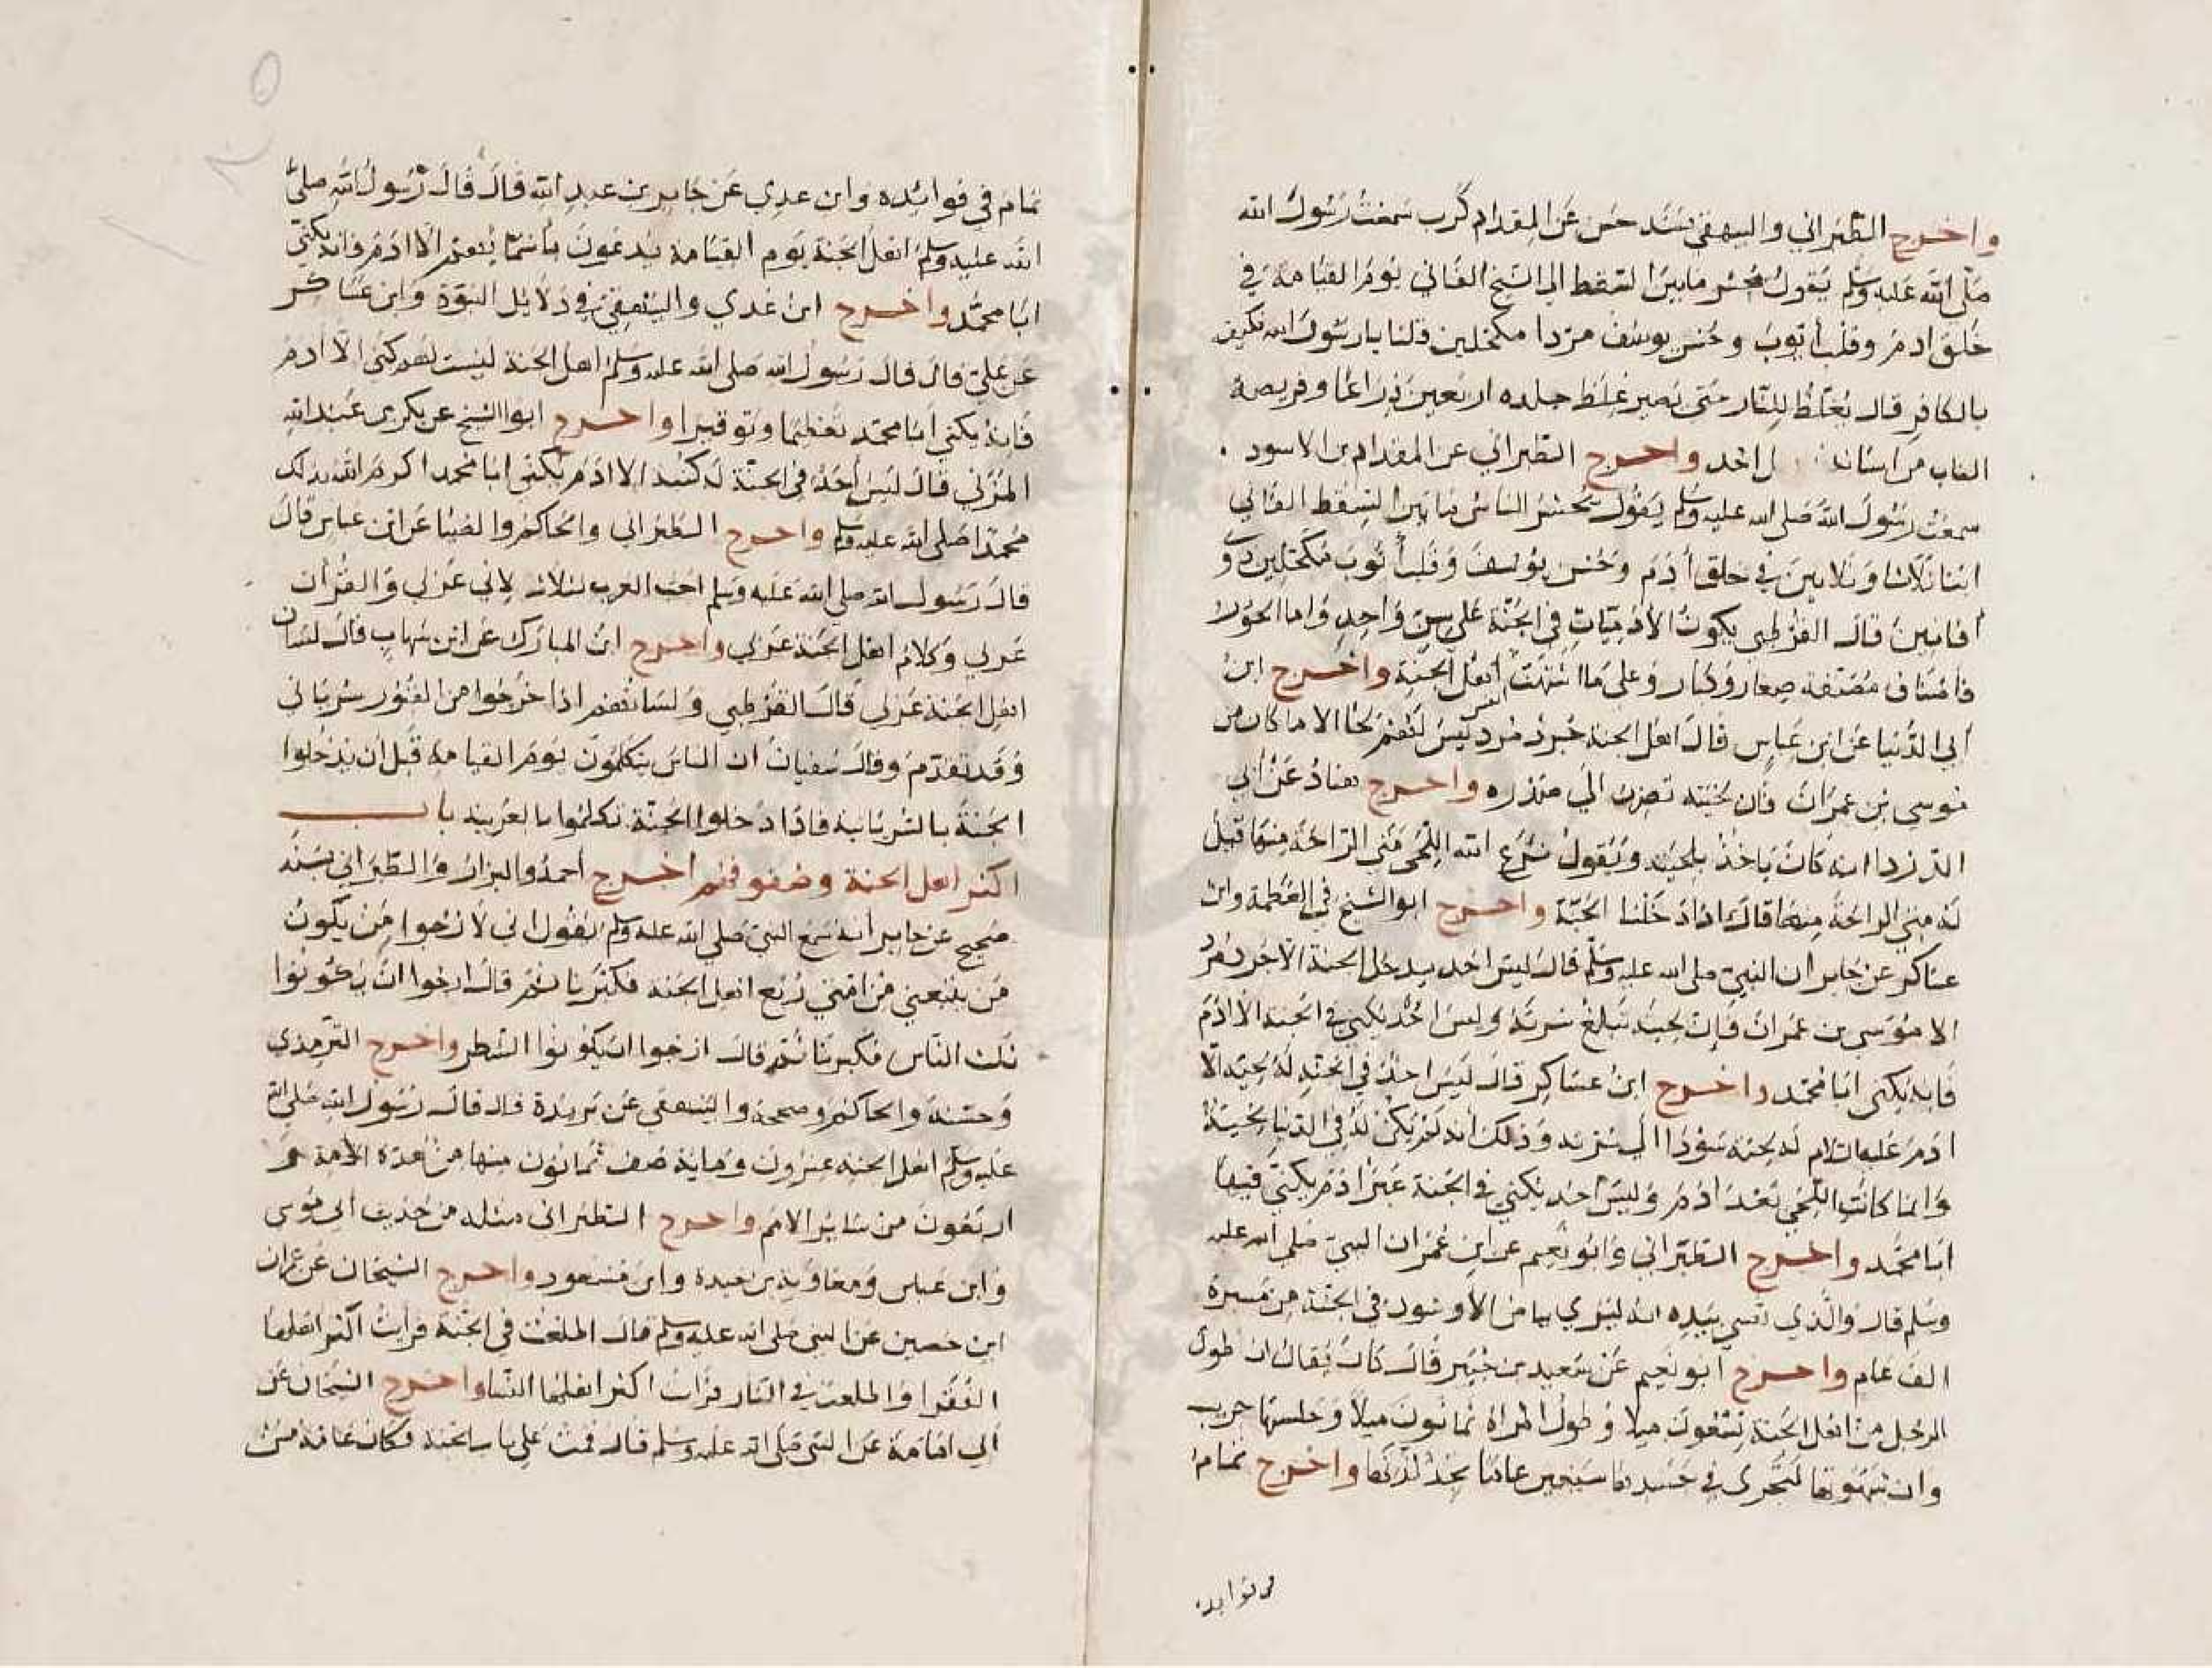 واخرج الطبراني والبيهقي بسند حسن عن المقدام كرب سمعت رسول الله
صلى الله عليه وسلم يقول يحشر ما بين السقط الى الشيخ الفاني يوم القيامة في
خلق ادم وقلب أيوب وحسن يوسف مردا مكحلين قلنا يا رسول الله فكيف
بالكافر قال يغلظ للنار حتى يصير غلظ جلده اربعين ذراعا وفريصة
الناب من اسنانه احد واخرج الطبراني عن المقدام بن الاسود .
سمعت رسول الله صلى الله عليه وسلم يقول يحشر الناس ما بين السقط الفاني
ابنا ثلاث وثلاثين في خلق أدم وحسن يوسف وقلب أيوب مكحلين ذوو
أفانين قال القرطبي يكون الأدميات في الجنة على سن واحد واما الحور
فاصناف مصنفة صغار وكبار وعلى ما اشتهت أنفس أهل الجنة واخرج ابن
أبي الدنيا عن ابن عباس قال اهل الجنة جرد مرد ليس لهم لحا الا ما كان من
موسى بن عمران فان لحيته تضرب الي صدره واخرج هناد عن أبي
الدرداء انه كان ياخذ بلحيته ويقول نزع الله اللحى متي الراحة منها قيل
له متي الراحة منها قال اذا دخلنا الجنة واخرج ابو الشيخ في العظمة وابن
عساكر عن جابر ان النبي صلى الله عليه وسلم قال ليس احد يدخل الجنة الا جرد مرد
الا موسى بن عمران فان لحيته تبلغ سرته وليس احد يكنى في الجنة الا ادم
فانه يكنى ابا محمد واخرج ابن عساكر قال ليس احد في الجنة له لحية الا
ادم عليه السلام له لحية سودا الي سرته وذلك انه لم يكن له في الدنيا لحية
وانما كانت اللحى بعد ادم وليس احد يكنى في الجنة غير ادم يكنى فيها
ابا محمد واخرج الطبراني وابو نعيم عن ابن عمران النبي صلى الله عليه
وسلم قال والذي نفسي بيده انه ليري بياض الأسود في الجنة من مسيرة
الف عام واخرج أبو نعيم عن سعيد بن جبير قال كان يقال ان طول
الرجل من اهل الجنة تسعون ميلا وطول المراة ثمانون ميلا وجلستها جريب
وان شهوتها لتجري في جسدها سبعين عاما يجد لذتها واخرج تمام
في فوايده
تمام في فوائده وابن عدي عن جابر بن عبد الله قال قال رسول الله صلى
الله عليه وسلم اهل الجنة يوم القيامة يدعون باسمايهم الا ادم فانه يكنى
ابا محمد واخرج ابن عدي والبيهقي في دلايل النبوة وابن عساكر
عن علي قال قال رسول الله صلى الله عليه وسلم اهل الجنة ليست لهم كنى الا ادم
فانه يكنى ابا محمد تعظيما وتوقيرا واخرج ابو الشيخ عن بكر بن عبد الله
المزني قال ليس أحد في الجنة له كنية الا ادم يكنى ابا محمد اكرم الله بذلك
محمدا صلى الله عليه وسلم واخرج الطبراني والحاكم والضيا عن ابن عباس قال
قال رسول الله صلى الله عليه وسلم احب العرب لثلاث لاني عربي والقرأن
عربي وكلام اهل الجنة عربي واخرج ابن المبارك عن ابن شهاب قال لسان
اهل الجنة عربي قال القرطبي ولسانهم اذا خرجوا من القبور سرياني
وقد تقدم وقال سفيان ان الناس يتكلمون يوم القيامة قبل ان يدخلوا
الجنة بالسريانية فاذا دخلوا الجنة تكلموا بالعربية باب
اكثر اهل الجنة وصفوفهم اخرج أحمد والبزار والطبراني بسند
صحيح عن جابر أنه سمع النبي صلى الله عليه وسلم يقول اني لأرجوا من يكون
من يتبعني من امتي ربع اهل الجنة فكبرنا ثم قال ارجوا ان يكونوا
ثلث الناس فكبرنا ثم قال ارجوا ان يكونوا الشطر واخرج الترمذي
وحسنه والحاكم وصححه والبيهقي عن بريدة قال قال رسول الله صلى الله
عليه وسلم اهل الجنة عشرون وماية صف ثمانون منها من هذة الأمة
اربعون من ساير الامم واخرج الطبراني مثله من حديث أبي موسى
وابن عباس ومعاوية بن حيدة وابن مسعود واخرج الشيخان عن عمران
ابن حصين عن النبي صلى الله عليه وسلم قال اطلعت في الجنة فرأيت أكثر اهلها
الفقرا واطلعت في النار فرأيت اكثر اهلها النسا واخرج الشيخان عن
أبي امامة عن النبي صلى الله عليه وسلم قال قمت على باب الجنة فكان عامة من